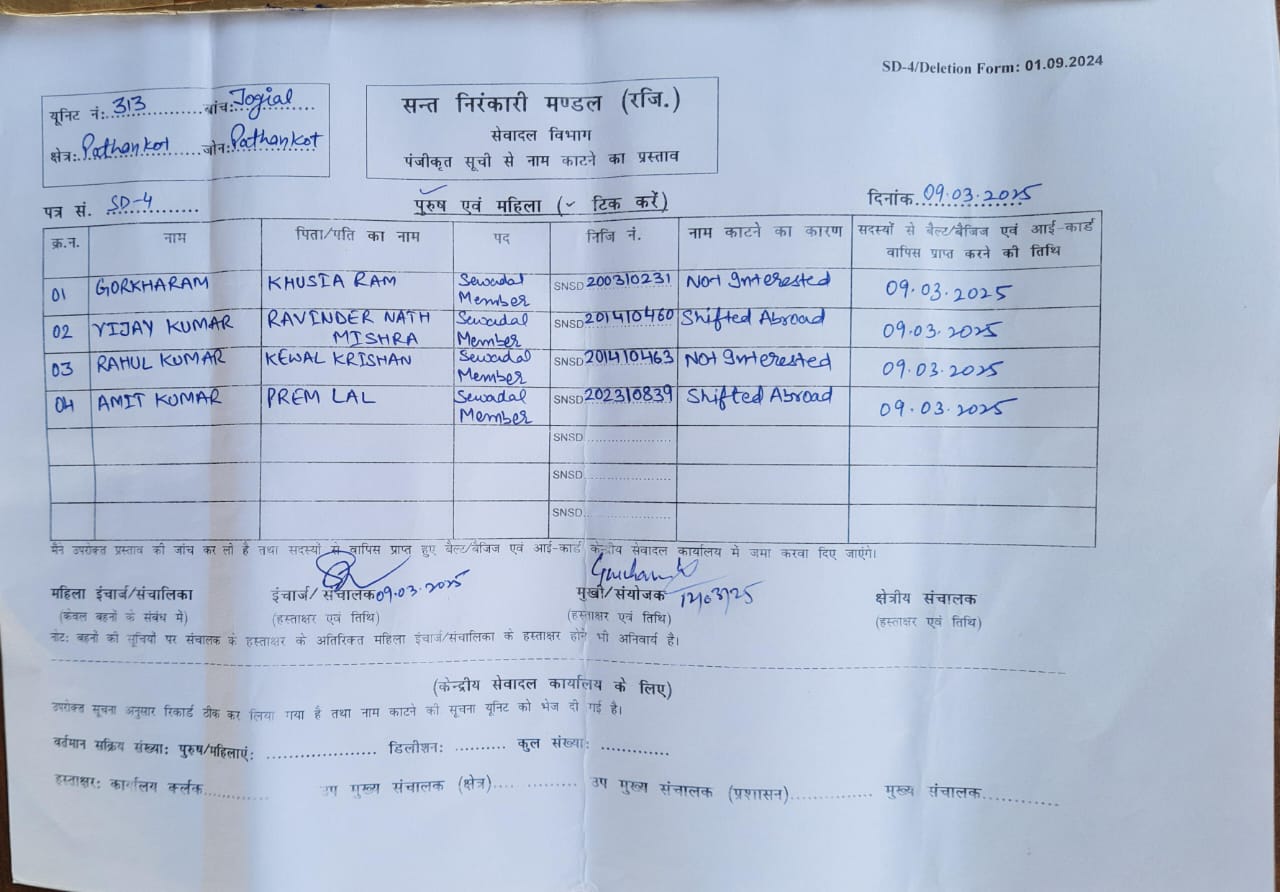 SD-4/Deletion Form: 01.09.2024
यूनिट नं: 313 ब्रांच: Jogial
क्षेत्र: Pathankot जोन: Pathankot
सन्त निरंकारी मण्डल (रजि.)
सेवादल विभाग
पंजीकृत सूची से नाम काटने का प्रस्ताव
पत्र सं. SD-4
पुरुष एवं महिला (✓ टिक करें)
दिनांक 09.03.2025
क्र.न. नाम पिता/पति का नाम पद निजि नं. नाम काटने का कारण सदस्यों से बैल्ट/बैजिज एवं आई-कार्ड वापिस प्राप्त करने की तिथि
01 GORKHARAM KHUSIA RAM Sewadal Member SNSD 200310231 Not Interested 09.03.2025
02 VIJAY KUMAR RAVINDER NATH MISHRA Sewadal Member SNSD 201410460 Shifted Abroad 09.03.2025
03 RAHUL KUMAR KEWAL KRISHAN Sewadal Member SNSD 201410463 Not Interested 09.03.2025
04 AMIT KUMAR PREM LAL Sewadal Member SNSD 202310839 Shifted Abroad 09.03.2025
SNSD
SNSD
SNSD
मैने उपरोक्त प्रस्ताव की जांच कर ली है तथा सदस्यों से वापिस प्राप्त हुए बैल्ट/बैजिज एवं आई-कार्ड केन्द्रीय सेवादल कार्यालय मे जमा करवा दिए जाएंगे।
महिला इंचार्ज/संचालिका इंचार्ज/ संचालक 09.03.2025 मुखी/संयोजक 12/03/25 क्षेत्रीय संचालक
(केवल बहनों के संबंध में) (हस्ताक्षर एवं तिथि) (हस्ताक्षर एवं तिथि) (हस्ताक्षर एवं तिथि)
नोट: बहनों की सूचियों पर संचालक के हस्ताक्षर के अतिरिक्त महिला इंचार्ज/संचालिका के हस्ताक्षर होने भी अनिवार्य है।
(केन्द्रीय सेवादल कार्यालय के लिए)
उपरोक्त सूचना अनुसार रिकार्ड ठीक कर लिया गया है तथा नाम काटने की सूचना यूनिट को भेज दी गई है।
वर्तमान सक्रिय संख्या: पुरुष/महिलाएं: डिलीशन: कुल संख्या:
हस्ताक्षर: कार्यालय क्लर्क उप मुख्य संचालक (क्षेत्र) उप मुख्य संचालक (प्रशासन) मुख्य संचालक